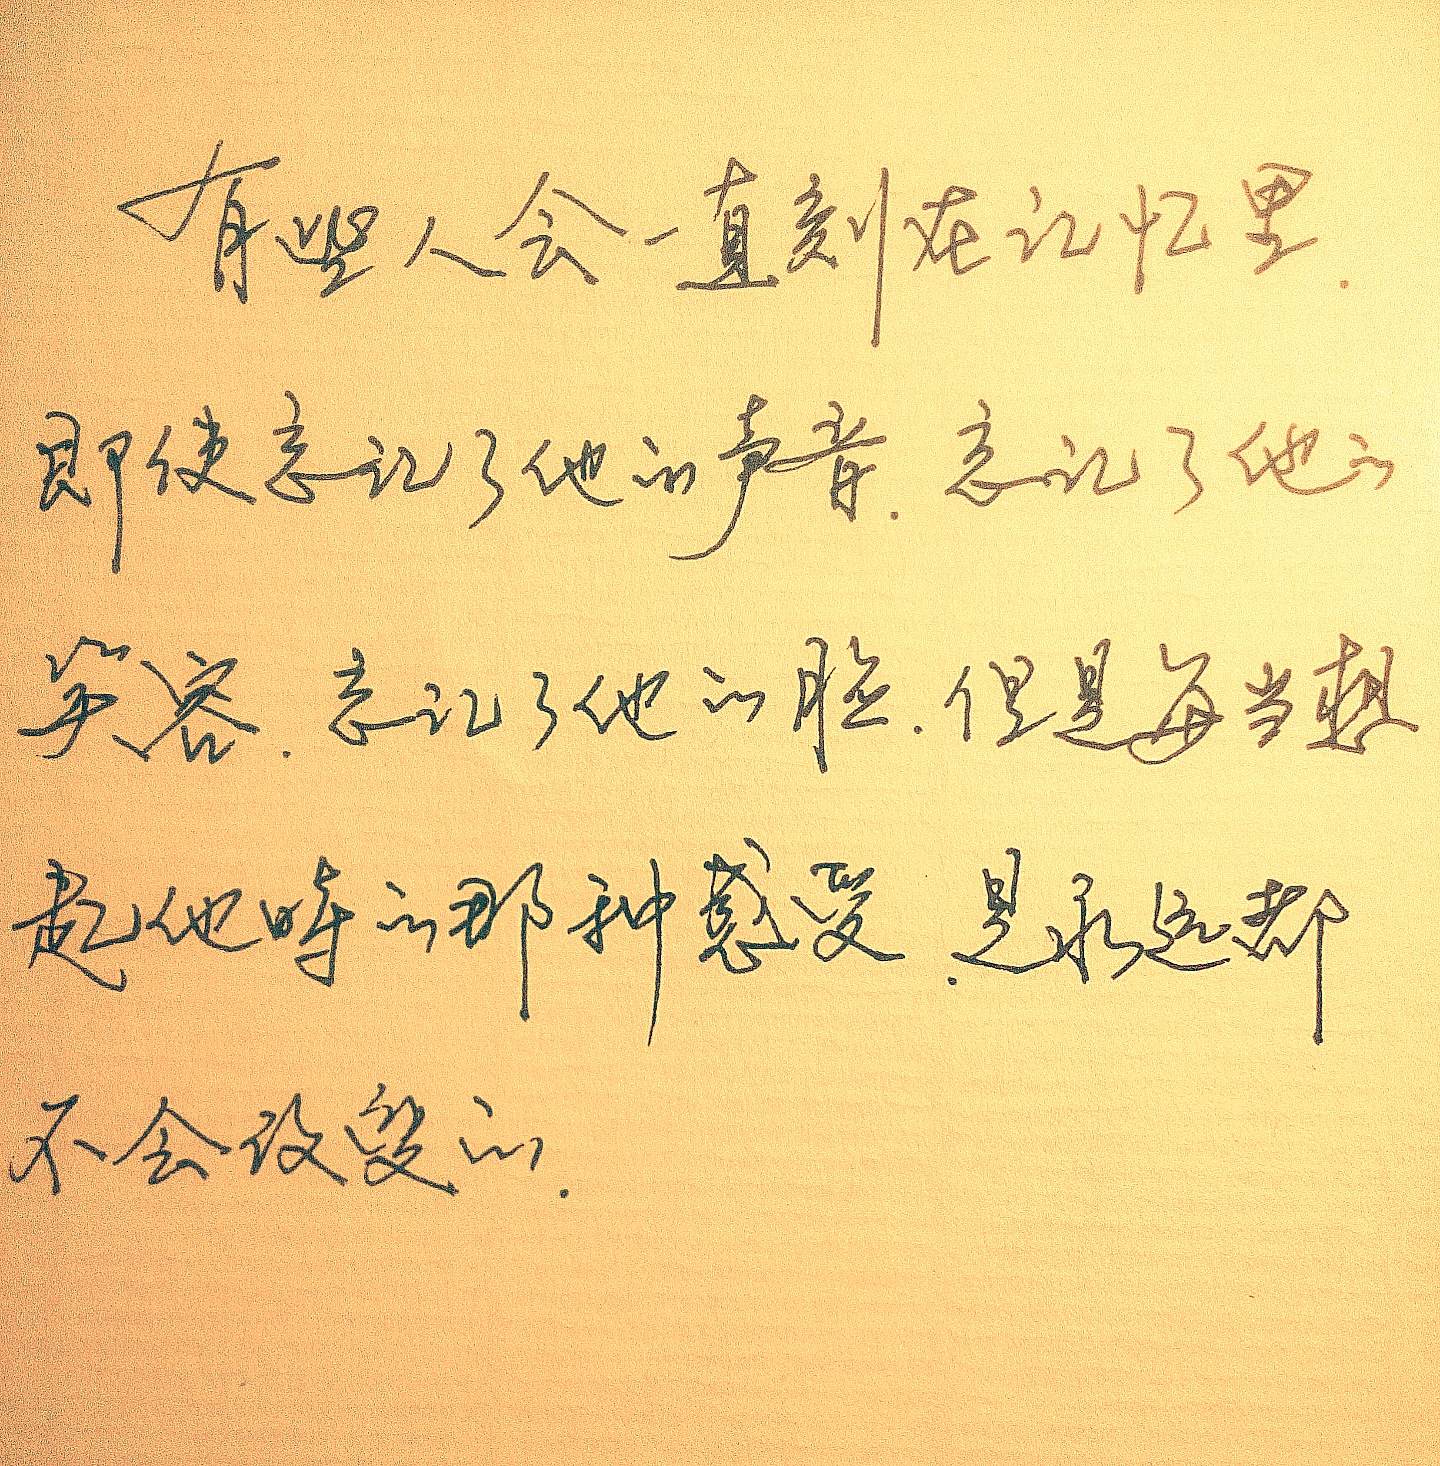 有些人会一直刻在记忆里.
即使忘记了他的声音.忘记了他的
笑容.忘记了他的脸.但是每当想
起他时的那种感受.是永远都
不会改变的.